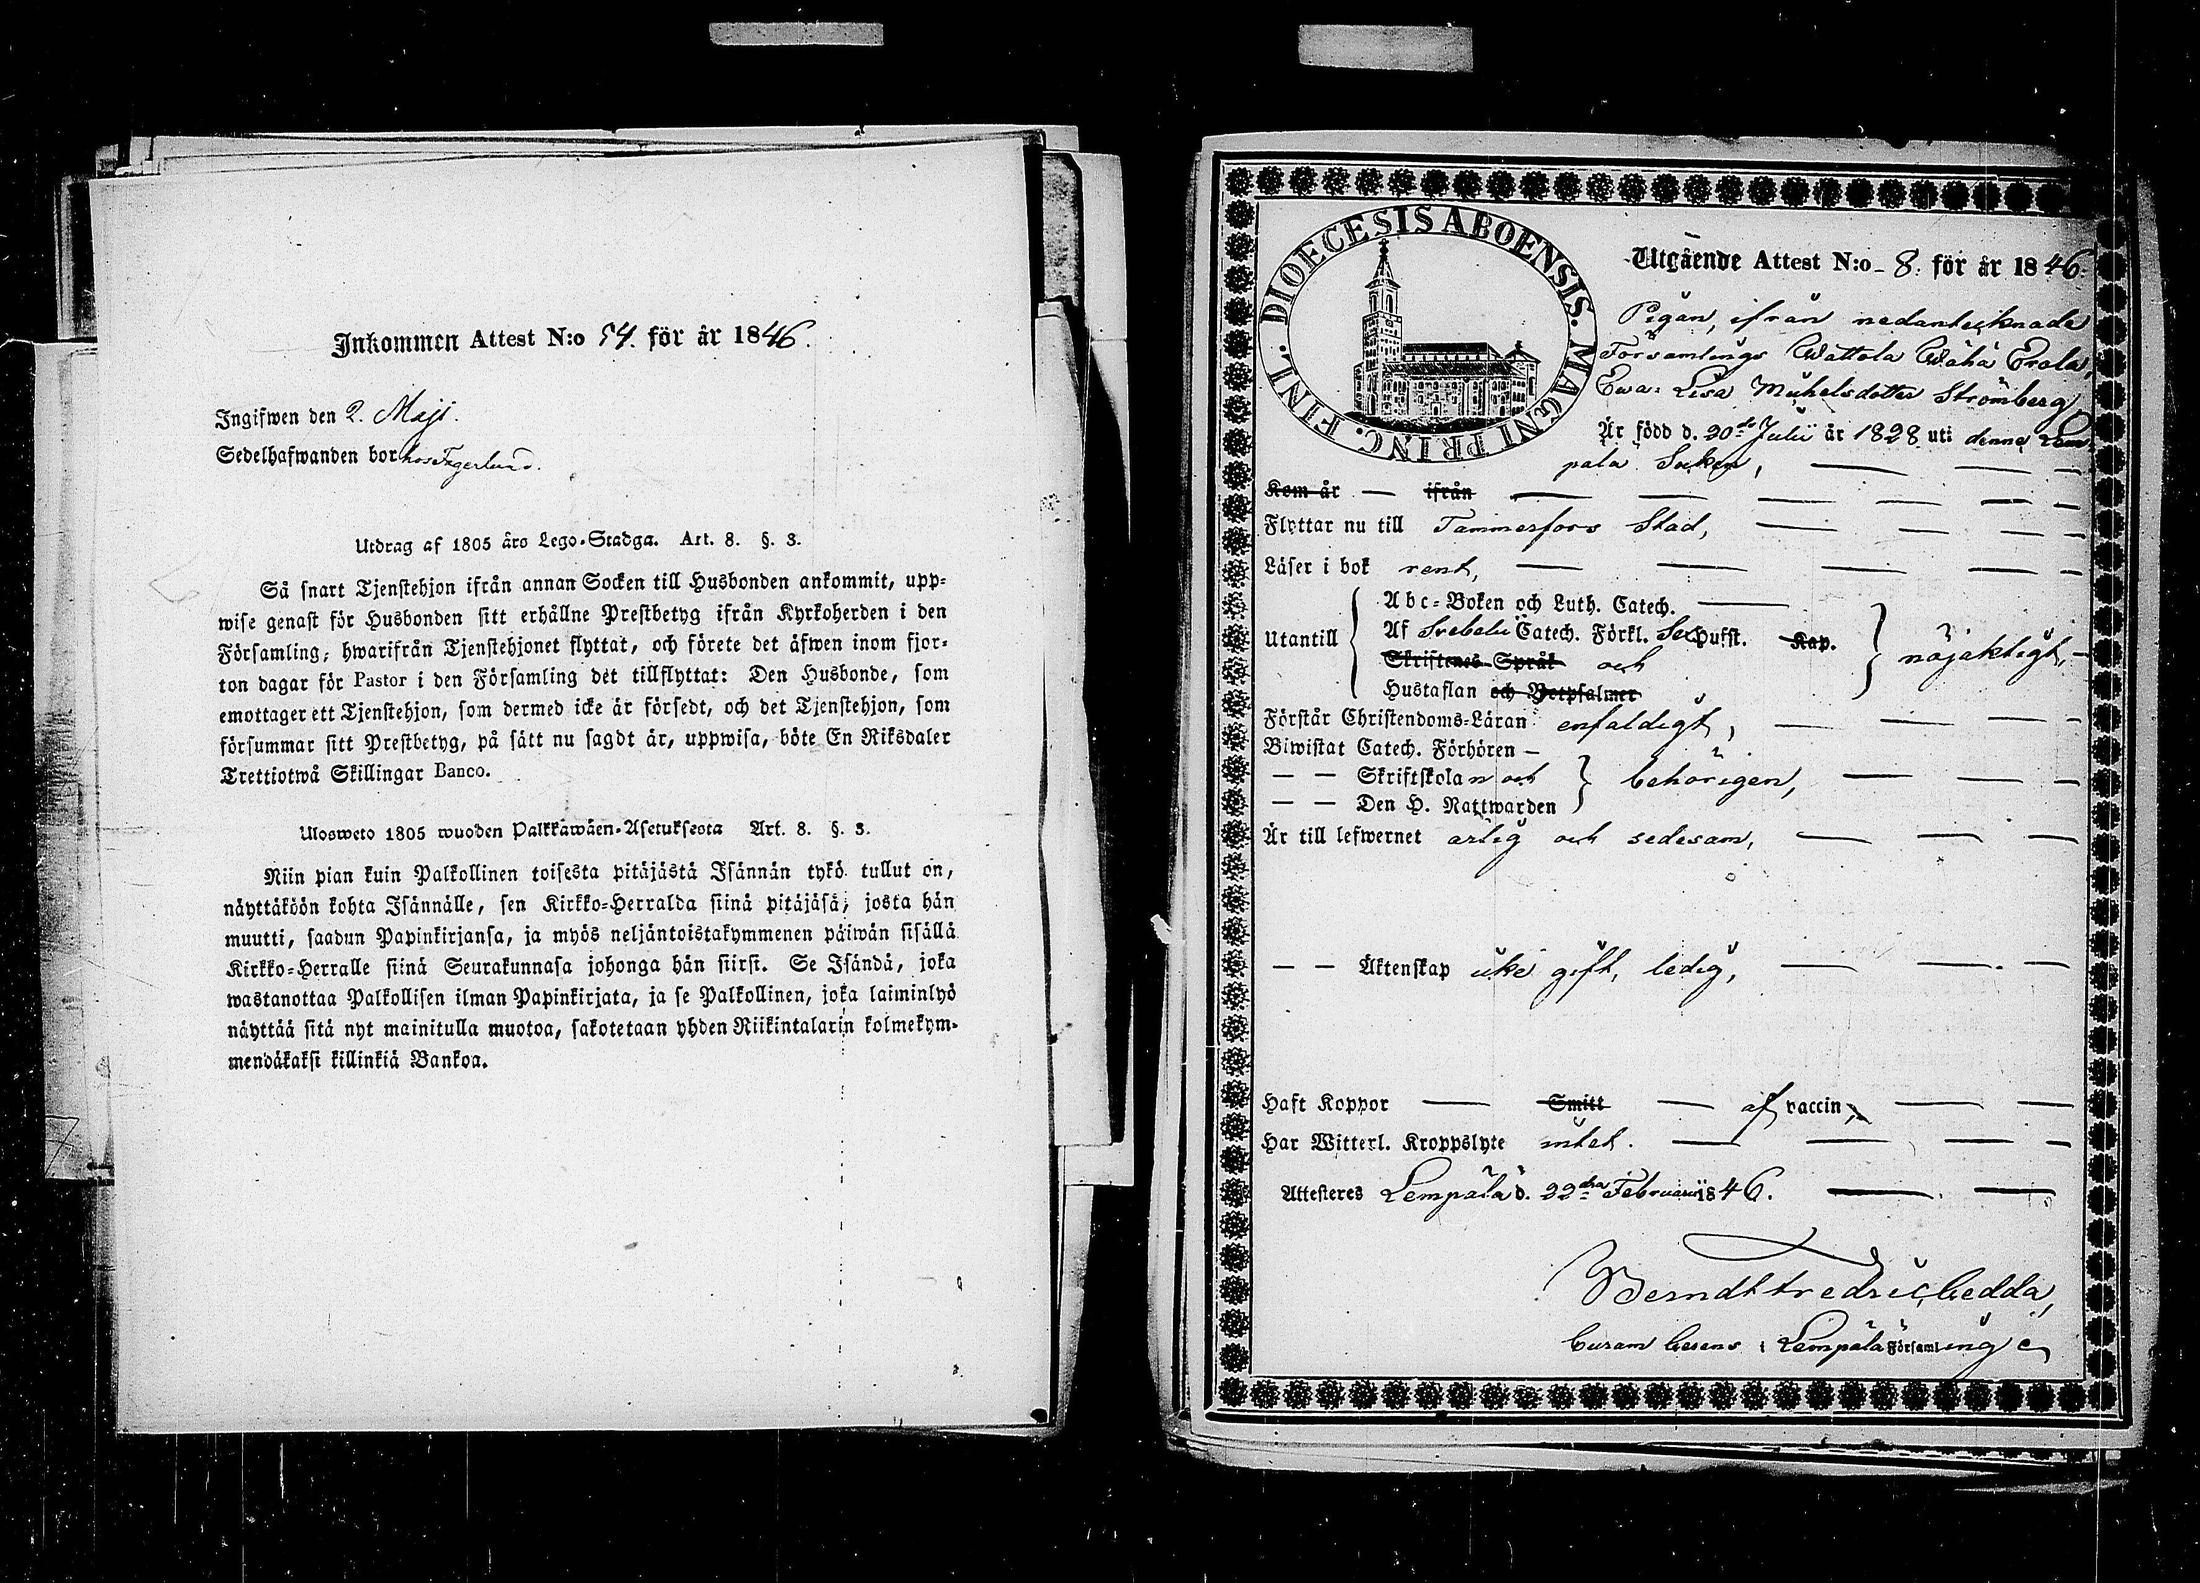 Inkommen Attest N:o 54. för år 1846.
Ingifwen den 2. Maji.
Sedelhafwanden bor hos Fagerlund.
Utdrag af 1805 års Lego-Stadga. Art. 8. §. 3.
Så snart Tjenstehjon ifrån annan Socken till Husbonden ankommit, upp-
wise genast för Husbonden sitt erhållne Prestbetyg ifrån Kyrkoherden i den
Församling, hwarifrån Tjenstehjonet flyttat, och förete det äfwen inom fjor-
ton dagar för Pastor i den Församling det tillflyttat: Den Husbonde, som
emottager ett Tjenstehjon, som dermed icke är försedt, och det Tjenstehjon, som
försummar sitt Prestbetyg, på sätt nu sagdt är, uppwisa, böte En Riksdaler
Trettiotwå Skillingar Banco.
Ulosweto 1805 wuoden Palkkawäen-Asetuksesta Art. 8. §. 3.
Niin pian kuin Palkollinen toisesta pitäjästä Isännän tykö tullut on,
näyttäköön kohta Isännälle, sen Kirkko-Herralda siinä pitäjäsä, josta hän
muutti, saadun Papinkirjansa, ja myös neljäntoistakymmenen päiwän sisällä
Kirkko-Herralle siinä Seurakunnasa johonga hän siirsi. Se Isändä, joka
wastanottaa Palkollisen ilman Papinkirjata, ja se Palkollinen, joka laiminlyö
näyttää sitä nyt mainitulla muotoa, sakotetaan yhden Riikintalarin kolmekym-
mendäkaksi killinkiä Bankoa.
DIOECESIS ABOENSIS. MAGNI PRINC. FINL.
Utgående Attest N:o 8. för år 1846.
Pigan, ifrån nedantecknade
Församlings Wattola Wähä Erola,
Ewa Lisa Michelsdotter Strömberg
Är född d. 20de Julii år 1828 uti denna Lem-
pala Socken,
Kom år — ifrån
Flyttar nu till Tammerfors Stad,
Läser i bok rent,
Utantill
Abc-Boken och Luth. Catech.
Af Svebelii Catech. Förkl. Sex Hufst. Kap.
Skriftenes Språk och
Hustaflan och Botpsalmer
nöjaktigt,
Förstår Christendoms-Läran enfaldigt,
Biwistat Catech. Förhören —
— — Skriftskolan och
— — Den H. Nattwarden
behörigen,
Är till lefwernet ärlig och sedesam,
— — Äktenskap icke gift, ledig,
Haft Koppor — Smitt — af vaccin,
Har Witterl. Kroppslyte intet.
Attesteres Lempälä d. 22dra Februarii 1846.
Berndt Fredric Gedda,
Curam Gerens i Lempälä Församling